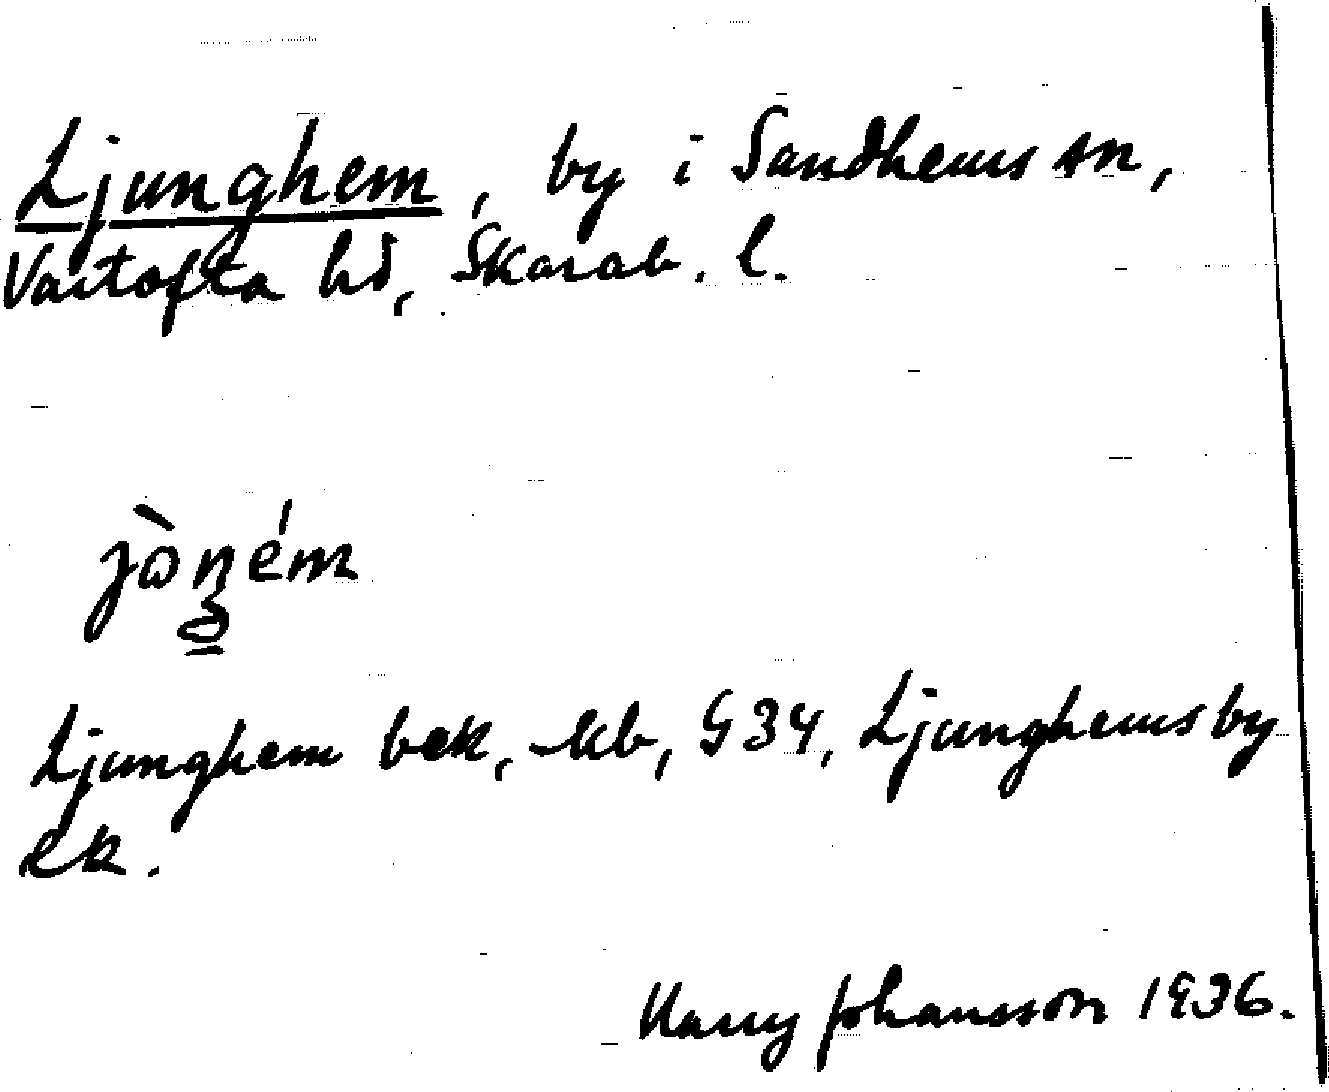 Ljunghem, by i Sandhems sn,
Vartofta hd, Skarab. l.
Ljunghem bek, -kb, G34, Ljunghemsby
ek.
Harry Johansson 1936.